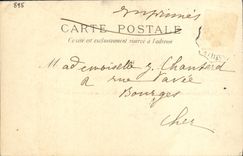 898
Imprimés
CARTE POSTALE
Ce côté est exclusivement réservé à l'adresse
Mademoiselle J. Chantard
rue Pavée
Bourges
Cher